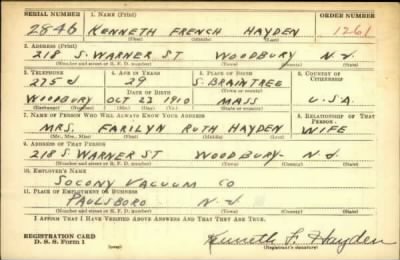 SERIAL NUMBER 1. NAME (Print) ORDER NUMBER
2846 KENNETH FRENCH HAYDEN 1261
(First) (Middle) (Last)
2. ADDRESS (Print)
218 S. WARNER ST WOODBURY N.J
(Number and street or R. F. D. number) (Town) (County) (State)
3. TELEPHONE 4. AGE IN YEARS 5. PLACE OF BIRTH 6. COUNTRY OF CITIZENSHIP
235 J 29 S. BRAINTREE
DATE OF BIRTH (Town or county)
WOODBURY OCT 23 1910 MASS U.S.A.
(Exchange) (Mo.) (Day) (Yr.) (State or country)
7. NAME OF PERSON WHO WILL ALWAYS KNOW YOUR ADDRESS 8. RELATIONSHIP OF THAT PERSON
MRS. FARILYN RUTH HAYDEN WIFE
(Mr., Mrs., Miss) (First) (Middle) (Last)
9. ADDRESS OF THAT PERSON
218 S. WARNER ST WOODBURY N.J
(Number and street or R. F. D. number) (Town) (County) (State)
10. EMPLOYER'S NAME
SOCONY VACUUM CO
11. PLACE OF EMPLOYMENT OR BUSINESS
PAULSBORO N.J
(Number and street or R. F. D. number) (Town) (County) (State)
I AFFIRM THAT I HAVE VERIFIED ABOVE ANSWERS AND THAT THEY ARE TRUE.
REGISTRATION CARD
D. S. S. Form 1 (over) Kenneth F. Hayden
(Registrant's signature)